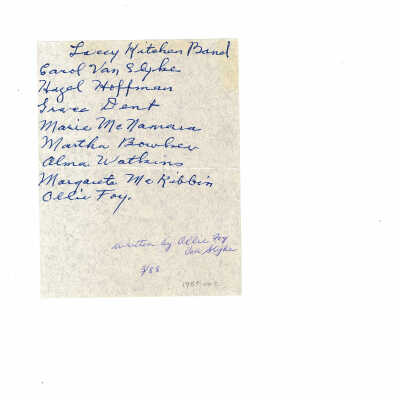 Lacey Kitchen Band
Carol Van Slyke
Hazel Hoffman
Grace Dent
Marie McNamara
Martha Bowlsev
Alma Watkins
Margarete McKibbin
Ollie Foy.
written by Ollie Foy
Van Slyke
3/88